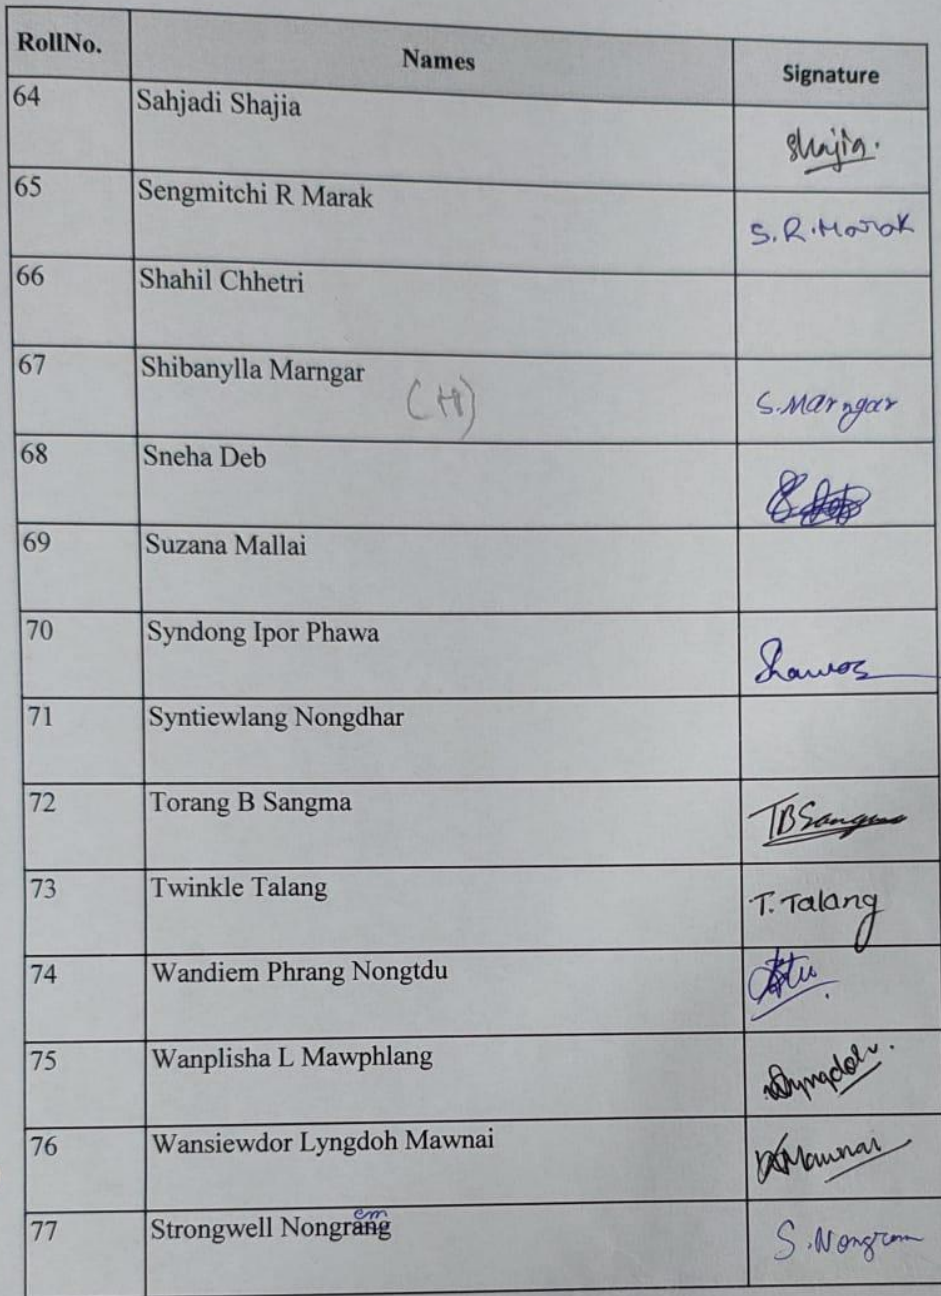 RollNo. Names Signature
64 Sahjadi Shajia Shajia.
65 Sengmitchi R Marak S.R.Marak
66 Shahil Chhetri
67 Shibanylla Marngar (H) S.Marngar
68 Sneha Deb
69 Suzana Mallai
70 Syndong Ipor Phawa
71 Syntiewlang Nongdhar
72 Torang B Sangma TBSangma
73 Twinkle Talang T. Talang
74 Wandiem Phrang Nongtdu
75 Wanplisha L Mawphlang
76 Wansiewdor Lyngdoh Mawnai Mawnai
em
77 Strongwell Nongrang S.Nongrem